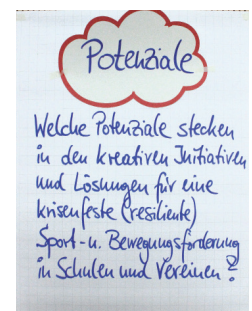 Potenziale
Welche Potenziale stecken
in den kreativen Initiativen
und Lösungen für eine
krisenfeste (resiliente)
Sport- u. Bewegungsförderung
in Schulen und Vereinen?